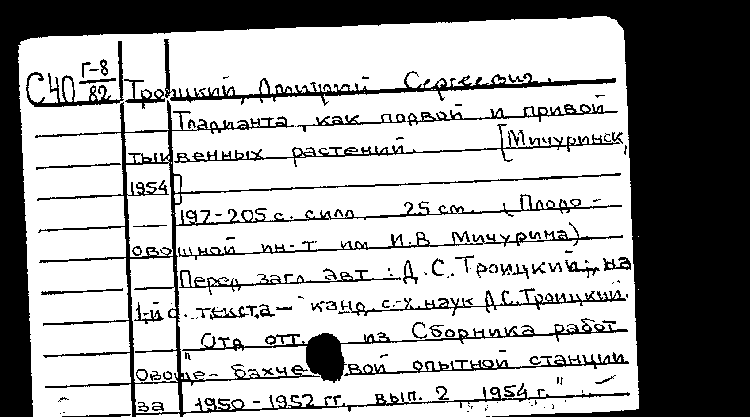 С40 Г-8/82 Троицкий, Дмитрий Сергеевич.
Тладианта, как подвой и привой
тыквенных растений. [Мичуринск,
1954]
197-205 с. силл. 25 см. (Плодо-
овощной ин-т им И.В Мичурина).
Перед загл авт: Д.С.Троицкий, на
1-й с. текста - канд с-х. наук Д.С.Троицкий.
"Отд отт. из Сборника работ
Овоще-бахчевой опытной станции
за 1950-1952 гг, вып. 2, 1954 г."